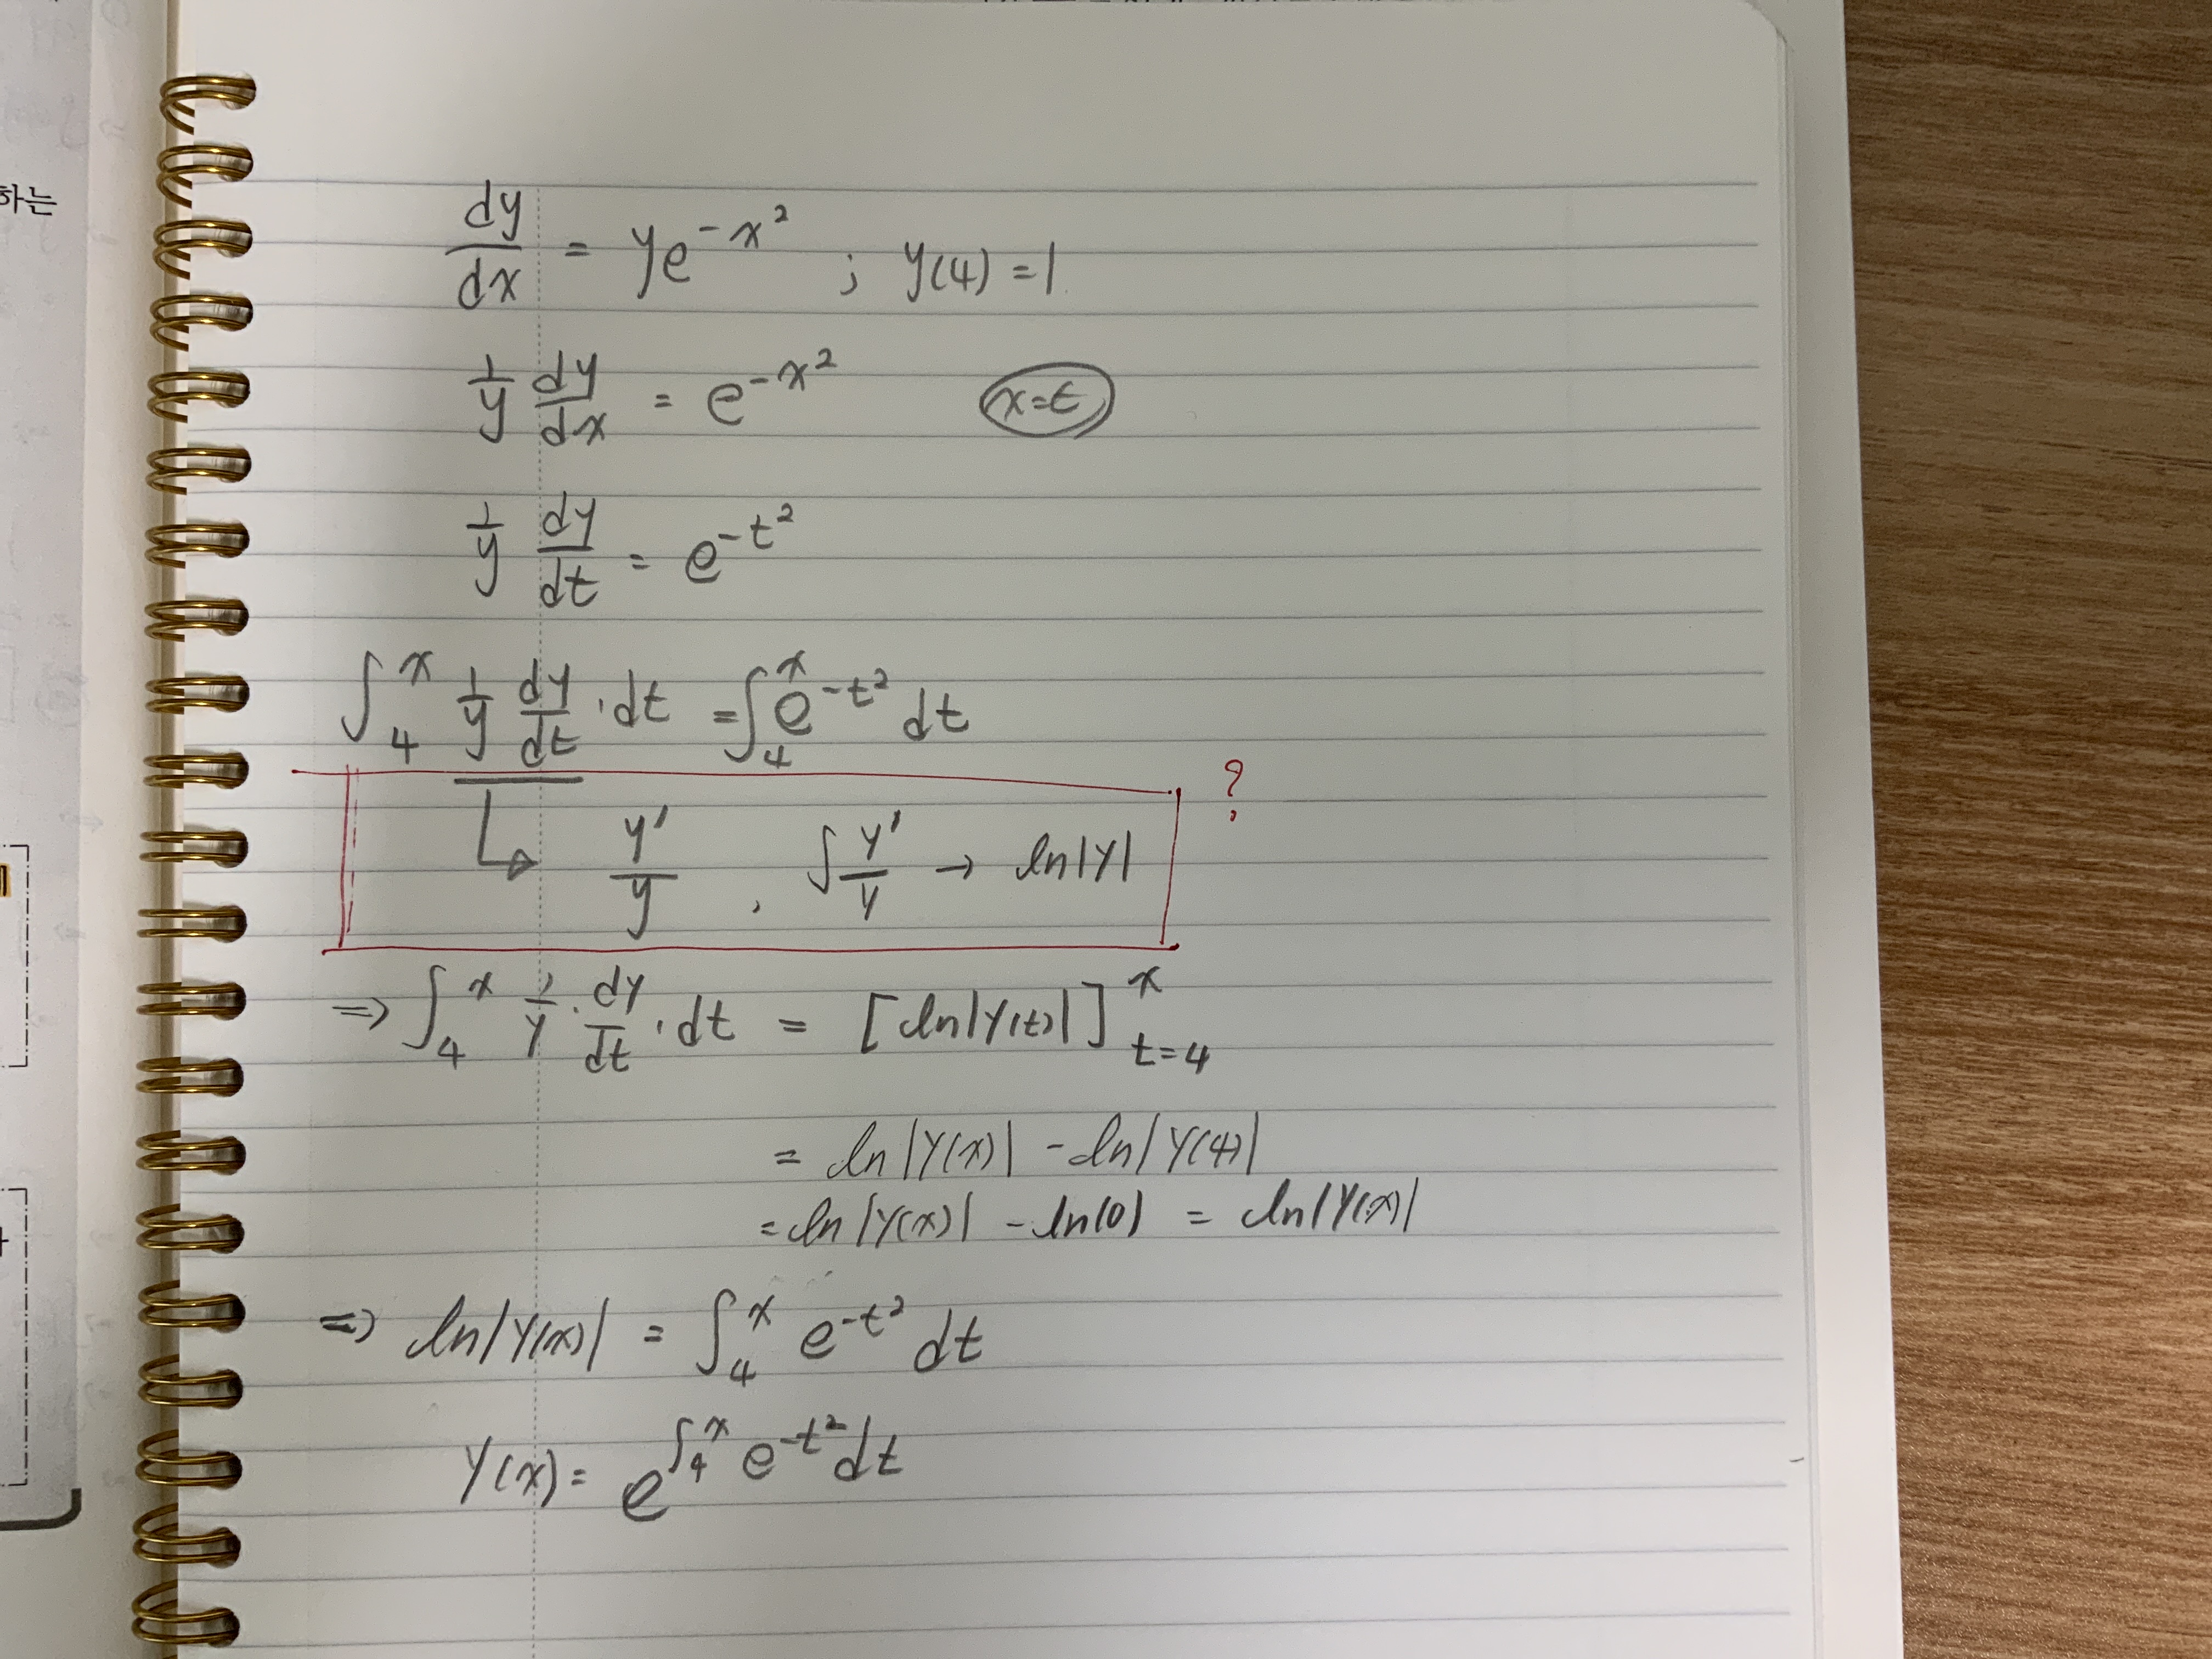 하는
dy/dx = ye^{-x²} ; y(4) = 1
1/y dy/dx = e^{-x²} x=t
1/y dy/dt = e^{-t²}
∫_4^x 1/y dy/dt · dt = ∫_4^x e^{-t²} dt
?
y'/y , ∫ y'/y → ln|y|
⇒ ∫_4^x 1/y · dy/dt · dt = [ln|y(t)|]_{t=4}^x
= ln|y(x)| - ln|y(4)|
= ln|y(x)| - ln(0) = ln|y(x)|
⇒ ln|y(x)| = ∫_4^x e^{-t²} dt
y(x) = e^{∫_4^x e^{-t²} dt}